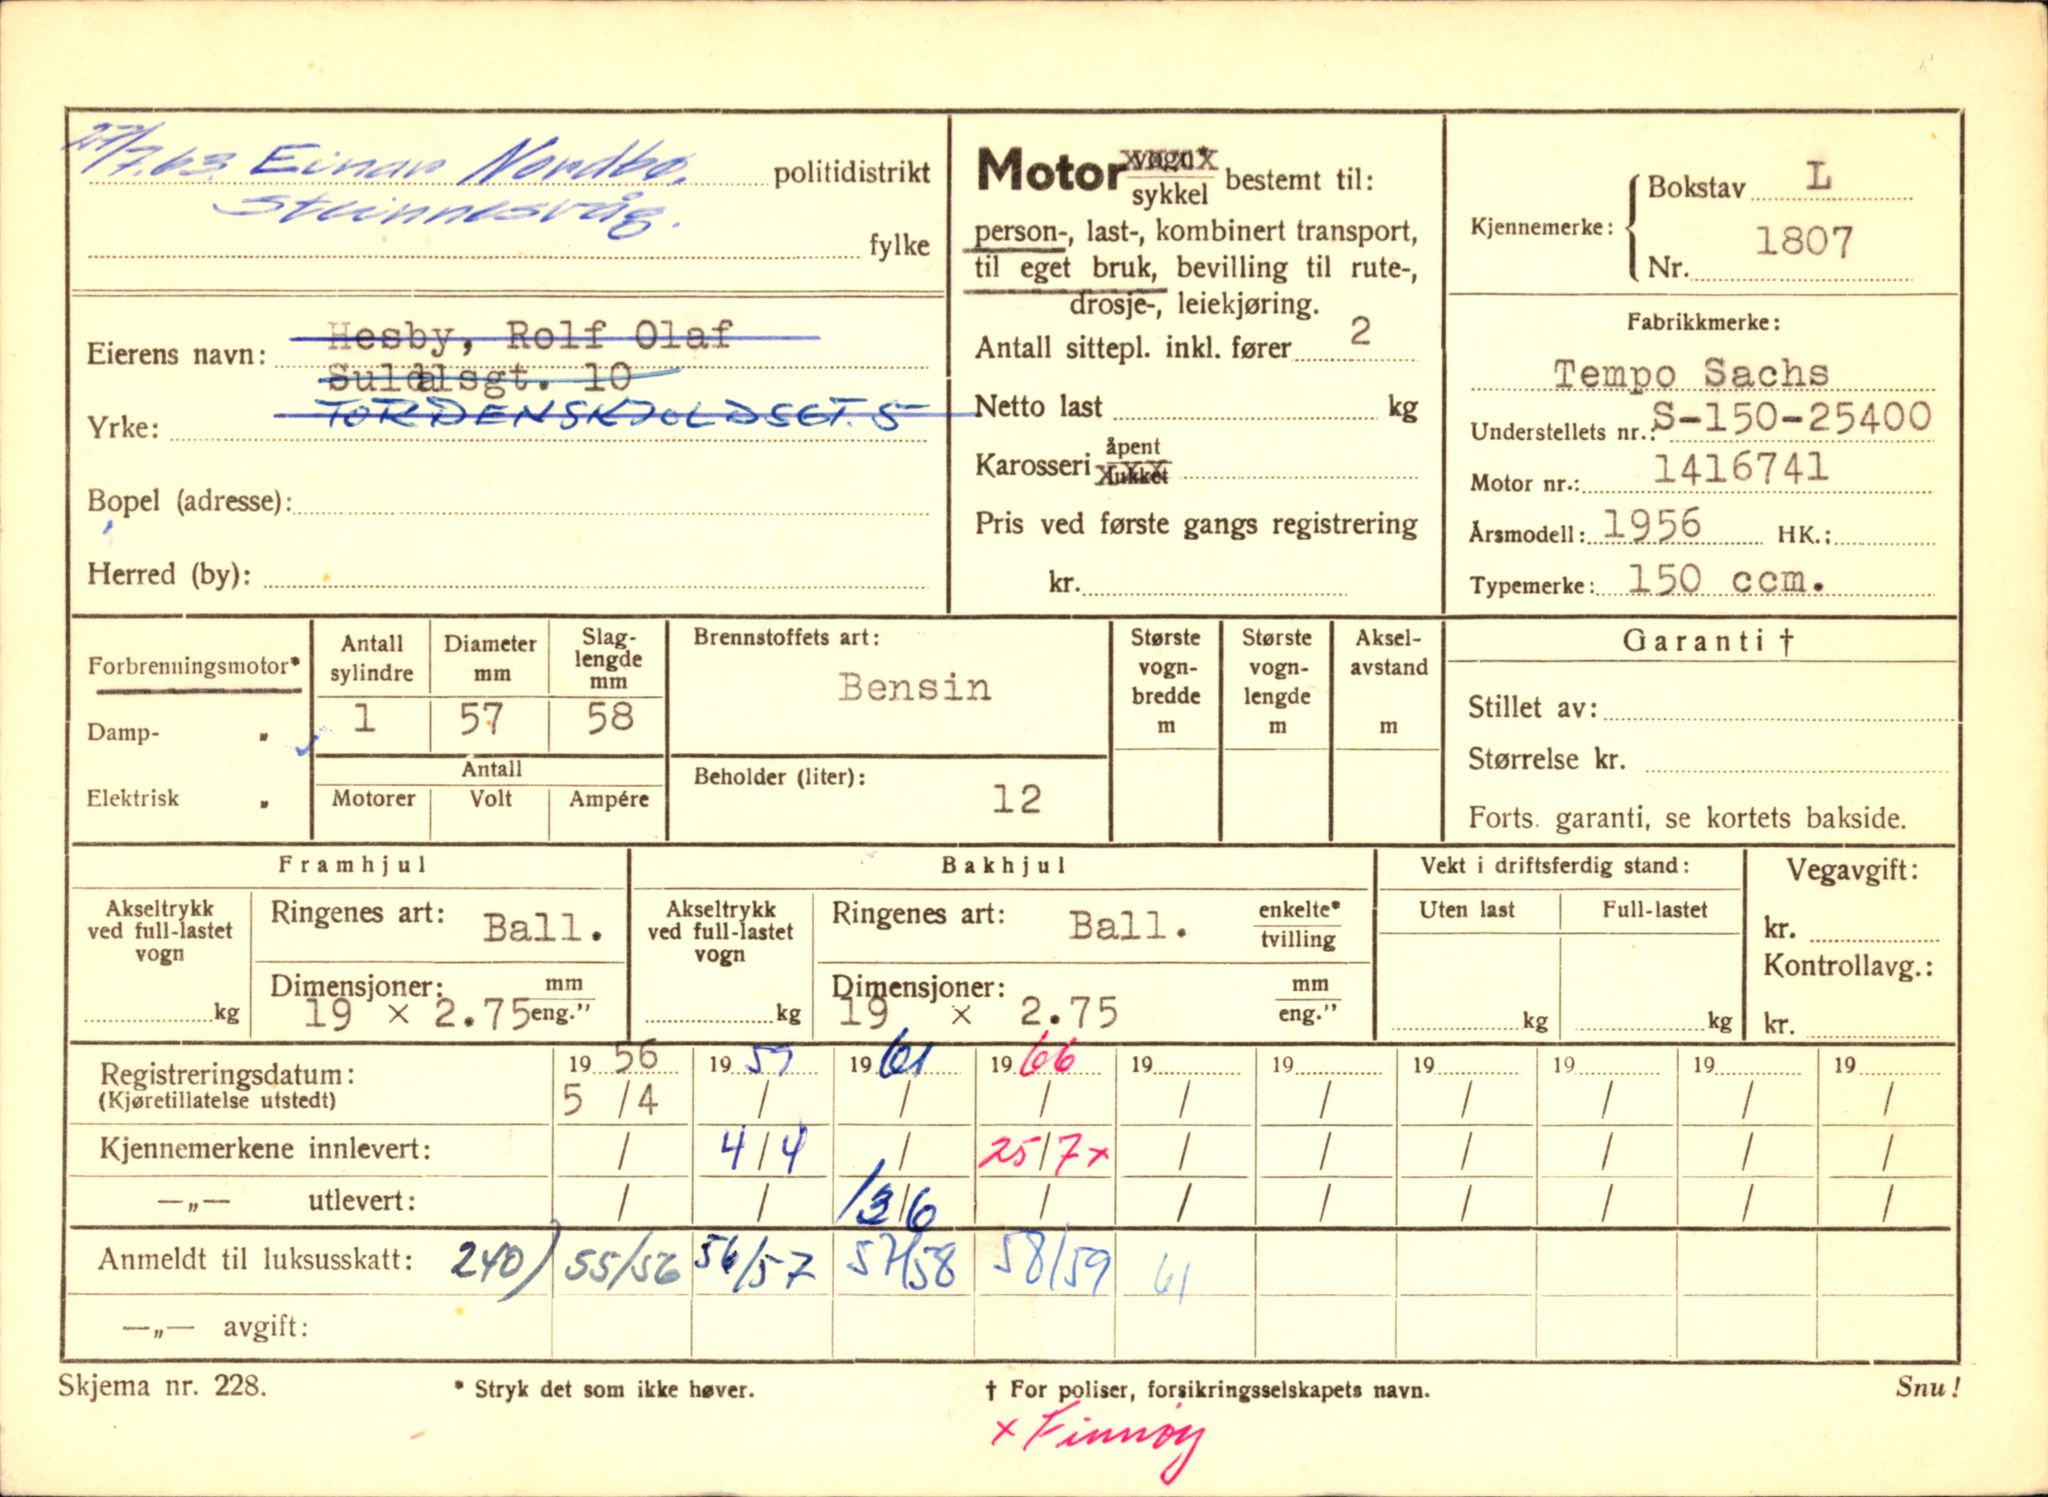 27/7.63. Einar Nordbø. politidistrikt
Steinnesvåg.
fylke
Eierens navn: Hesby, Rolf Olaf
Suldalsgt. 10
Yrke: TORDENSKJOLDSGT. 5
Bopel (adresse):
Herred (by):
Motor vogn* / sykkel bestemt til:
person-, last-, kombinert transport,
til eget bruk, bevilling til rute-,
drosje-, leiekjøring.
Antall sittepl. inkl. fører 2
Netto last kg
Karosseri åpent / lukket
Pris ved første gangs registrering
kr.
Kjennemerke: Bokstav L
Nr. 1807
Fabrikkmerke:
Tempo Sachs
Understellets nr.: S-150-25400
Motor nr.: 1416741
Årsmodell: 1956 HK.:
Typemerke: 150 ccm.
Forbrenningsmotor*
Damp- „
Elektrisk „
Antall sylindre 1
Diameter mm 57
Slag-lengde mm 58
Antall
Motorer Volt Ampére
Brennstoffets art:
Bensin
Beholder (liter):
12
Største vogn-bredde m
Største vogn-lengde m
Aksel-avstand m
Garanti †
Stillet av:
Størrelse kr.
Forts. garanti, se kortets bakside.
Framhjul
Akseltrykk ved full-lastet vogn
kg
Ringenes art: Ball.
Dimensjoner: mm / eng."
19 × 2.75
Bakhjul
Akseltrykk ved full-lastet vogn
kg
Ringenes art: Ball. enkelte* / tvilling
Dimensjoner: mm / eng."
19 × 2.75
Vekt i driftsferdig stand:
Uten last Full-lastet
kg kg
Vegavgift:
kr.
Kontrollavg.:
kr.
Registreringsdatum: 19 56 19 57 19 61 19 66 19 19 19 19 19 19
(Kjøretillatelse utstedt) 5 / 4 / / / / / / / / /
Kjennemerkene innlevert: / 4 / 4 / 25 / 7 x / / / / / /
—„— utlevert: / / /3/6 / / / / / / /
Anmeldt til luksusskatt: 240) 55/56 56/57 57/58 58/59 61
—„— avgift:
Skjema nr. 228. * Stryk det som ikke høver. † For poliser, forsikringsselskapets navn. Snu!
x Finnøy